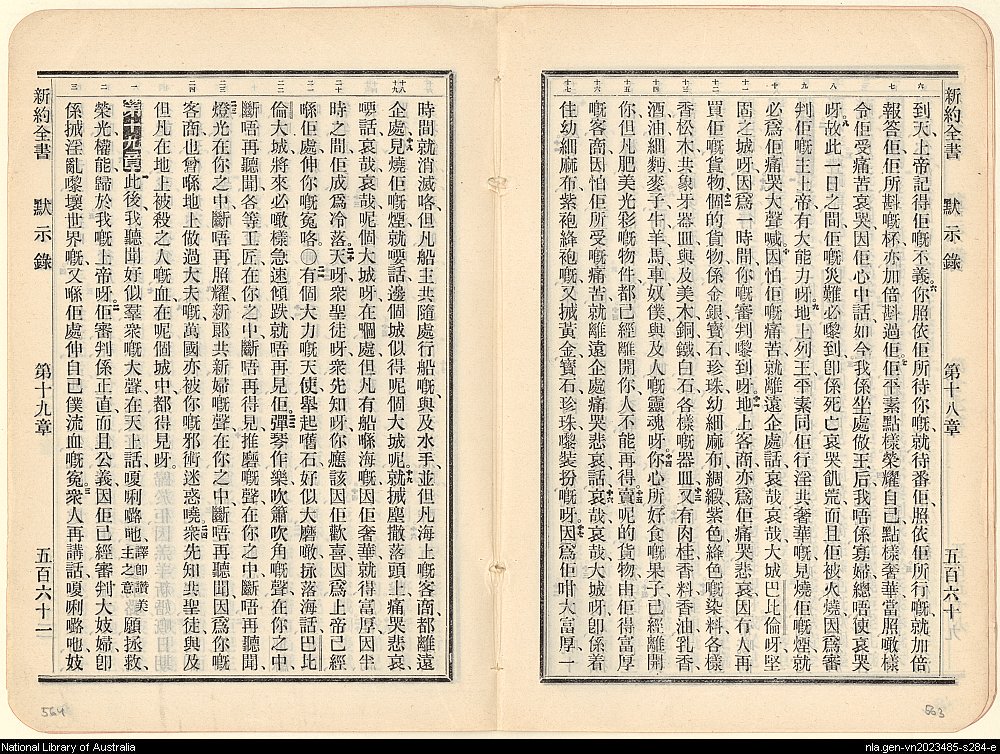 新約全書 默示錄 第十八章 五百六十
六 七 八 九 十 十一 十二 十三 十四 十五 十六 十七
到天、上帝記得佢嘅不義。你照依佢所待你嘅、就待番佢、照依佢所行嘅、就加倍
報答佢、佢所斟嘅杯、亦加倍斟過佢。佢平素點樣榮耀自己、點樣奢華、當照噉樣
令佢受痛苦哀哭、因佢心中話、如今我係坐處做王后、我唔係寡婦、總唔使哀哭
呀。故此一日之間、佢嘅災難必嚟到、卽係死亡哀哭飢荒、而且佢被火燒、因爲審
判佢嘅主上帝有大能力呀。地上列王平素同佢行淫、共奢華嘅、見燒佢嘅煙、就
必爲佢痛哭大聲喊、因怕佢嘅痛苦、就離遠企處話、哀哉、哀哉、大城巴比倫呀、堅
固之城呀、因爲一時間你嘅審判嚟到呀。地上客商亦爲佢痛哭悲哀、因有人再
買佢嘅貨物、個的貨物係金銀寶石珍珠幼細麻布綢緞紫色絳色嘅染料、各樣
香松木、共象牙器皿、與及美木銅鐵白石各樣嘅器皿、又有肉桂香料香油乳香
酒油細麵麥子牛羊馬車奴僕、與及人嘅靈魂呀。你心所好食嘅果子、已經離開
你、但凡肥美光彩嘅物件、都已經離開你、人不能再得、賣呢的貨物由佢得富厚
嘅客商、因怕佢所受嘅痛苦、就離遠企處痛哭悲哀話、哀哉、哀哉、大城呀、卽係着
佳幼細麻布紫袍絳袍嘅、又搣黃金寶石珍珠嚟裝扮嘅呀。因爲佢咁大富厚、一
時間就消滅咯、但凡船主、共隨處行船嘅、與及水手、並但凡海上嘅客商、都離遠
企處、見燒佢嘅煙、就嗌話、邊個城似得呢個大城呢。就搣塵撒落頭上、痛哭悲哀
嗌話、哀哉、哀哉、呢個大城呀、在嗰處但凡有船喺海嘅、因佢奢華、就得富厚、因半
時之間、佢成爲冷落。天呀、衆聖徒呀、衆先知呀、你應該因佢歡喜、因爲上帝已經
喺佢處伸你嘅寃咯○有個大力嘅天使舉起嚿石、好似大磨噉、揼落海話、巴比
倫大城將來必噉樣急速傾跌、就唔再見佢。彈琴作樂吹簫吹角嘅聲、在你之中
斷唔再聽聞、各等工匠、在你之中斷唔再得見、推磨嘅聲、在你之中斷唔再聽聞、
燈光在你之中、斷唔再照耀、新郞共新婦嘅聲、在你之中、斷唔再聽聞、因爲你嘅
客商也曾喺地上做過大夫嘅、萬國亦被你嘅邪術迷惑嘵。衆先知共聖徒、與及
但凡在地上被殺之人嘅血、在呢個城中、都得見呀。
第十九章 此後我聽聞好似羣衆嘅大聲、在天上話、嗄唎嚧吔、譯卽讚美主之意、願拯救、
榮光、權能、歸於我嘅上帝呀。佢審判係正直、而且公義、因佢已經審判大妓婦、卽
係搣淫亂嚟壞世界嘅、又喺佢處伸自己僕流血嘅寃。衆人再講話、嗄唎嚧吔、妓
十八 十九 二十 二一 二二 二三 二四 一 二 三
新約全書 默示錄 第十九章 五百六十一
563
564
National Library of Australia
nla.gen-vn2023485-s284-e